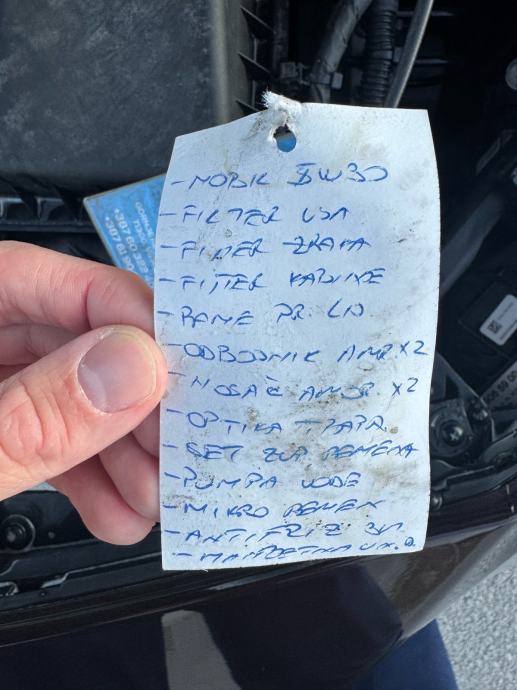 - MOBIL 5W30
- FILTER ULJA
- FILTER ZRAKA
- FILTER KABINE
- RAME PR. LD
- ODBOJNIK AMR X2
- NOSAČ AMOR. X2
- OPTIKA TRAPA
- SET ZUP. REMENA
- PUMPA VODE
- MIKRO REMEN
- ANTIFRIZ 3L
- MANŽETNA